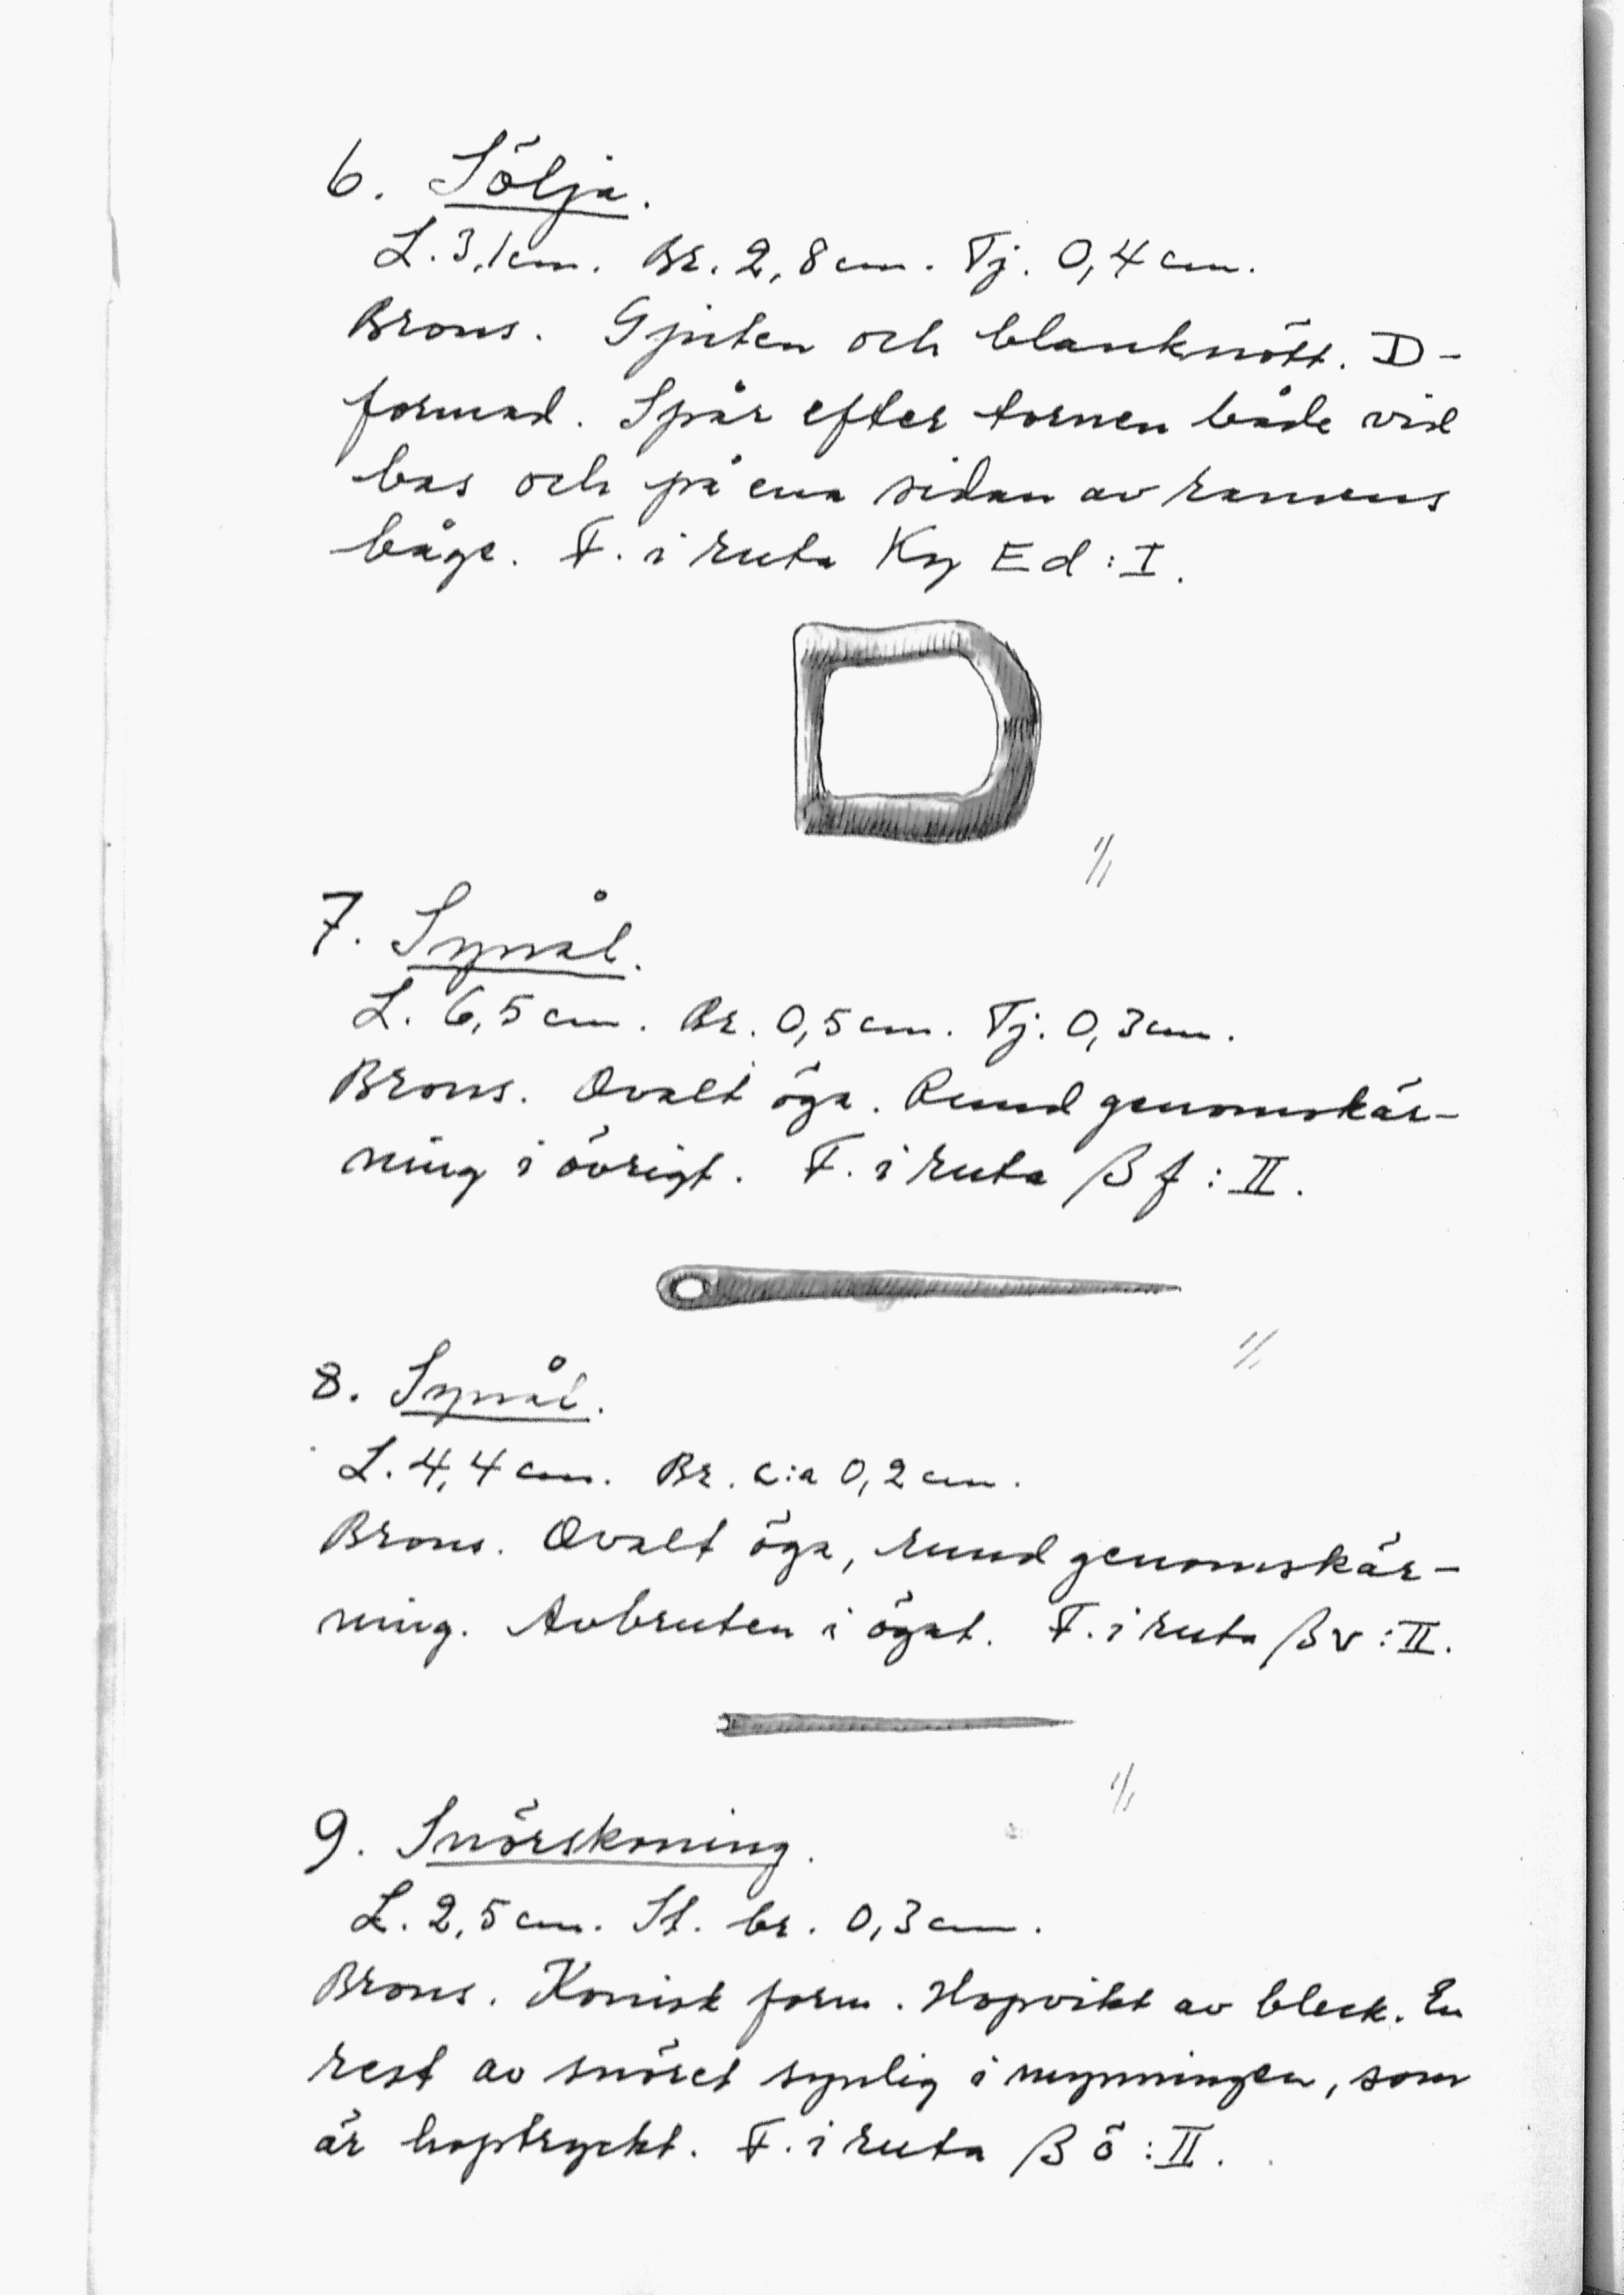 6. Sölja.
L. 3,1 cm. Br. 2,8 cm. Tj. 0,4 cm.
Brons. Gjuten och blanknött. D-
formad. Spår efter tornen både vid
bas och på ena sidan av ramens
båge. F. i ruta Ky Ed : I.
1/1
7. Synål.
L. 6,5 cm. Br. 0,5 cm. Tj. 0,3 cm.
Brons. Ovalt öga. Rund genomskär-
ning i övrigt. F. i ruta β f : II.
1/1
8. Synål.
L. 4,4 cm. Br. c:a 0,2 cm.
Brons. Ovalt öga, rund genomskär-
ning. Avbruten i ögat. F. i ruta β v : II.
1/1
9. Snörskoning.
L. 2,5 cm. St. br. 0,3 cm.
Brons. Konisk form. Hopvikt av bleck. En
rest av snöret synlig i mynningen, som
är hoptryckt. F. i ruta β ö : II.